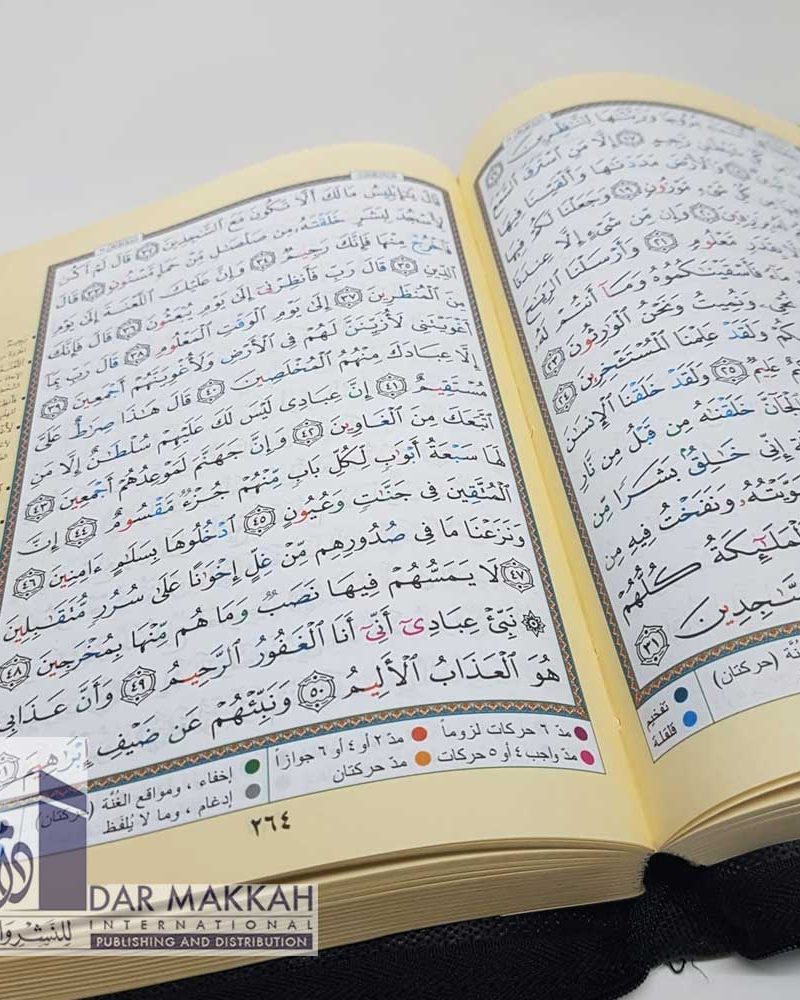 بُرُوجًا وَزَيَّنَّٰهَا لِلنَّٰظِرِينَ
رَّجِيمٍ ١٧ إِلَّا مَنِ ٱسْتَرَقَ ٱلسَّمْعَ
وَٱلْأَرْضَ مَدَدْنَٰهَا وَأَلْقَيْنَا فِيهَا
شَىْءٍ مَّوْزُونٍ ١٩ وَجَعَلْنَا لَكُمْ فِيهَا
بِرَٰزِقِينَ ٢٠ وَإِن مِّن شَىْءٍ إِلَّا عِندَنَا
بِقَدَرٍ مَّعْلُومٍ ٢١ وَأَرْسَلْنَا ٱلرِّيَٰحَ
مَآءً فَأَسْقَيْنَٰكُمُوهُ وَمَآ أَنتُمْ لَهُۥ
نُحْىِۦ وَنُمِيتُ وَنَحْنُ ٱلْوَٰرِثُونَ ٢٣
وَلَقَدْ عَلِمْنَا ٱلْمُسْتَـْٔخِرِينَ ٢٤
عَلِيمٌ ٢٥ وَلَقَدْ خَلَقْنَا ٱلْإِنسَٰنَ
وَٱلْجَآنَّ خَلَقْنَٰهُ مِن قَبْلُ مِن نَّارِ
إِنِّى خَٰلِقٌۢ بَشَرًا مِّن
سَوَّيْتُهُۥ وَنَفَخْتُ فِيهِ مِن
ٱلْمَلَٰٓئِكَةُ كُلُّهُمْ
ٱلسَّٰجِدِينَ ٣١
تفخيم
قلقلة
الغُنَّة (حركتان)
قَالَ يَٰٓإِبْلِيسُ مَا لَكَ أَلَّا تَكُونَ مَعَ ٱلسَّٰجِدِينَ ٣٢ قَالَ لَمْ أَكُن
لِّأَسْجُدَ لِبَشَرٍ خَلَقْتَهُۥ مِن صَلْصَٰلٍ مِّنْ حَمَإٍ مَّسْنُونٍ ٣٣ قَالَ
فَٱخْرُجْ مِنْهَا فَإِنَّكَ رَجِيمٌ ٣٤ وَإِنَّ عَلَيْكَ ٱللَّعْنَةَ إِلَىٰ يَوْمِ
ٱلدِّينِ ٣٥ قَالَ رَبِّ فَأَنظِرْنِىٓ إِلَىٰ يَوْمِ يُبْعَثُونَ ٣٦ قَالَ فَإِنَّكَ
مِنَ ٱلْمُنظَرِينَ ٣٧ إِلَىٰ يَوْمِ ٱلْوَقْتِ ٱلْمَعْلُومِ ٣٨ قَالَ رَبِّ بِمَآ
أَغْوَيْتَنِى لَأُزَيِّنَنَّ لَهُمْ فِى ٱلْأَرْضِ وَلَأُغْوِيَنَّهُمْ أَجْمَعِينَ ٣٩
إِلَّا عِبَادَكَ مِنْهُمُ ٱلْمُخْلَصِينَ ٤٠ قَالَ هَٰذَا صِرَٰطٌ عَلَىَّ
مُسْتَقِيمٌ ٤١ إِنَّ عِبَادِى لَيْسَ لَكَ عَلَيْهِمْ سُلْطَٰنٌ إِلَّا مَنِ
ٱتَّبَعَكَ مِنَ ٱلْغَاوِينَ ٤٢ وَإِنَّ جَهَنَّمَ لَمَوْعِدُهُمْ أَجْمَعِينَ ٤٣
لَهَا سَبْعَةُ أَبْوَٰبٍ لِّكُلِّ بَابٍ مِّنْهُمْ جُزْءٌ مَّقْسُومٌ ٤٤ إِنَّ
ٱلْمُتَّقِينَ فِى جَنَّٰتٍ وَعُيُونٍ ٤٥ ٱدْخُلُوهَا بِسَلَٰمٍ ءَامِنِينَ ٤٦
وَنَزَعْنَا مَا فِى صُدُورِهِم مِّنْ غِلٍّ إِخْوَٰنًا عَلَىٰ سُرُرٍ مُّتَقَٰبِلِينَ
٤٧ لَا يَمَسُّهُمْ فِيهَا نَصَبٌ وَمَا هُم مِّنْهَا بِمُخْرَجِينَ ٤٨
۞ نَبِّئْ عِبَادِىٓ أَنِّىٓ أَنَا ٱلْغَفُورُ ٱلرَّحِيمُ ٤٩ وَأَنَّ عَذَابِى
هُوَ ٱلْعَذَابُ ٱلْأَلِيمُ ٥٠ وَنَبِّئْهُمْ عَن ضَيْفِ إِبْرَٰهِيمَ ٥١
مدّ ٦ حركات لزوماً
مدّ ٢ أو ٤ أو ٦ جوازاً
مدّ واجب ٤ أو ٥ حركات
مدّ حركتان
إخفاء ، ومواقع الغُنَّة (حركتان)
إدغام ، وما لا يُلفَظ
٢٦٤
DAR MAKKAH
INTERNATIONAL
PUBLISHING AND DISTRIBUTION